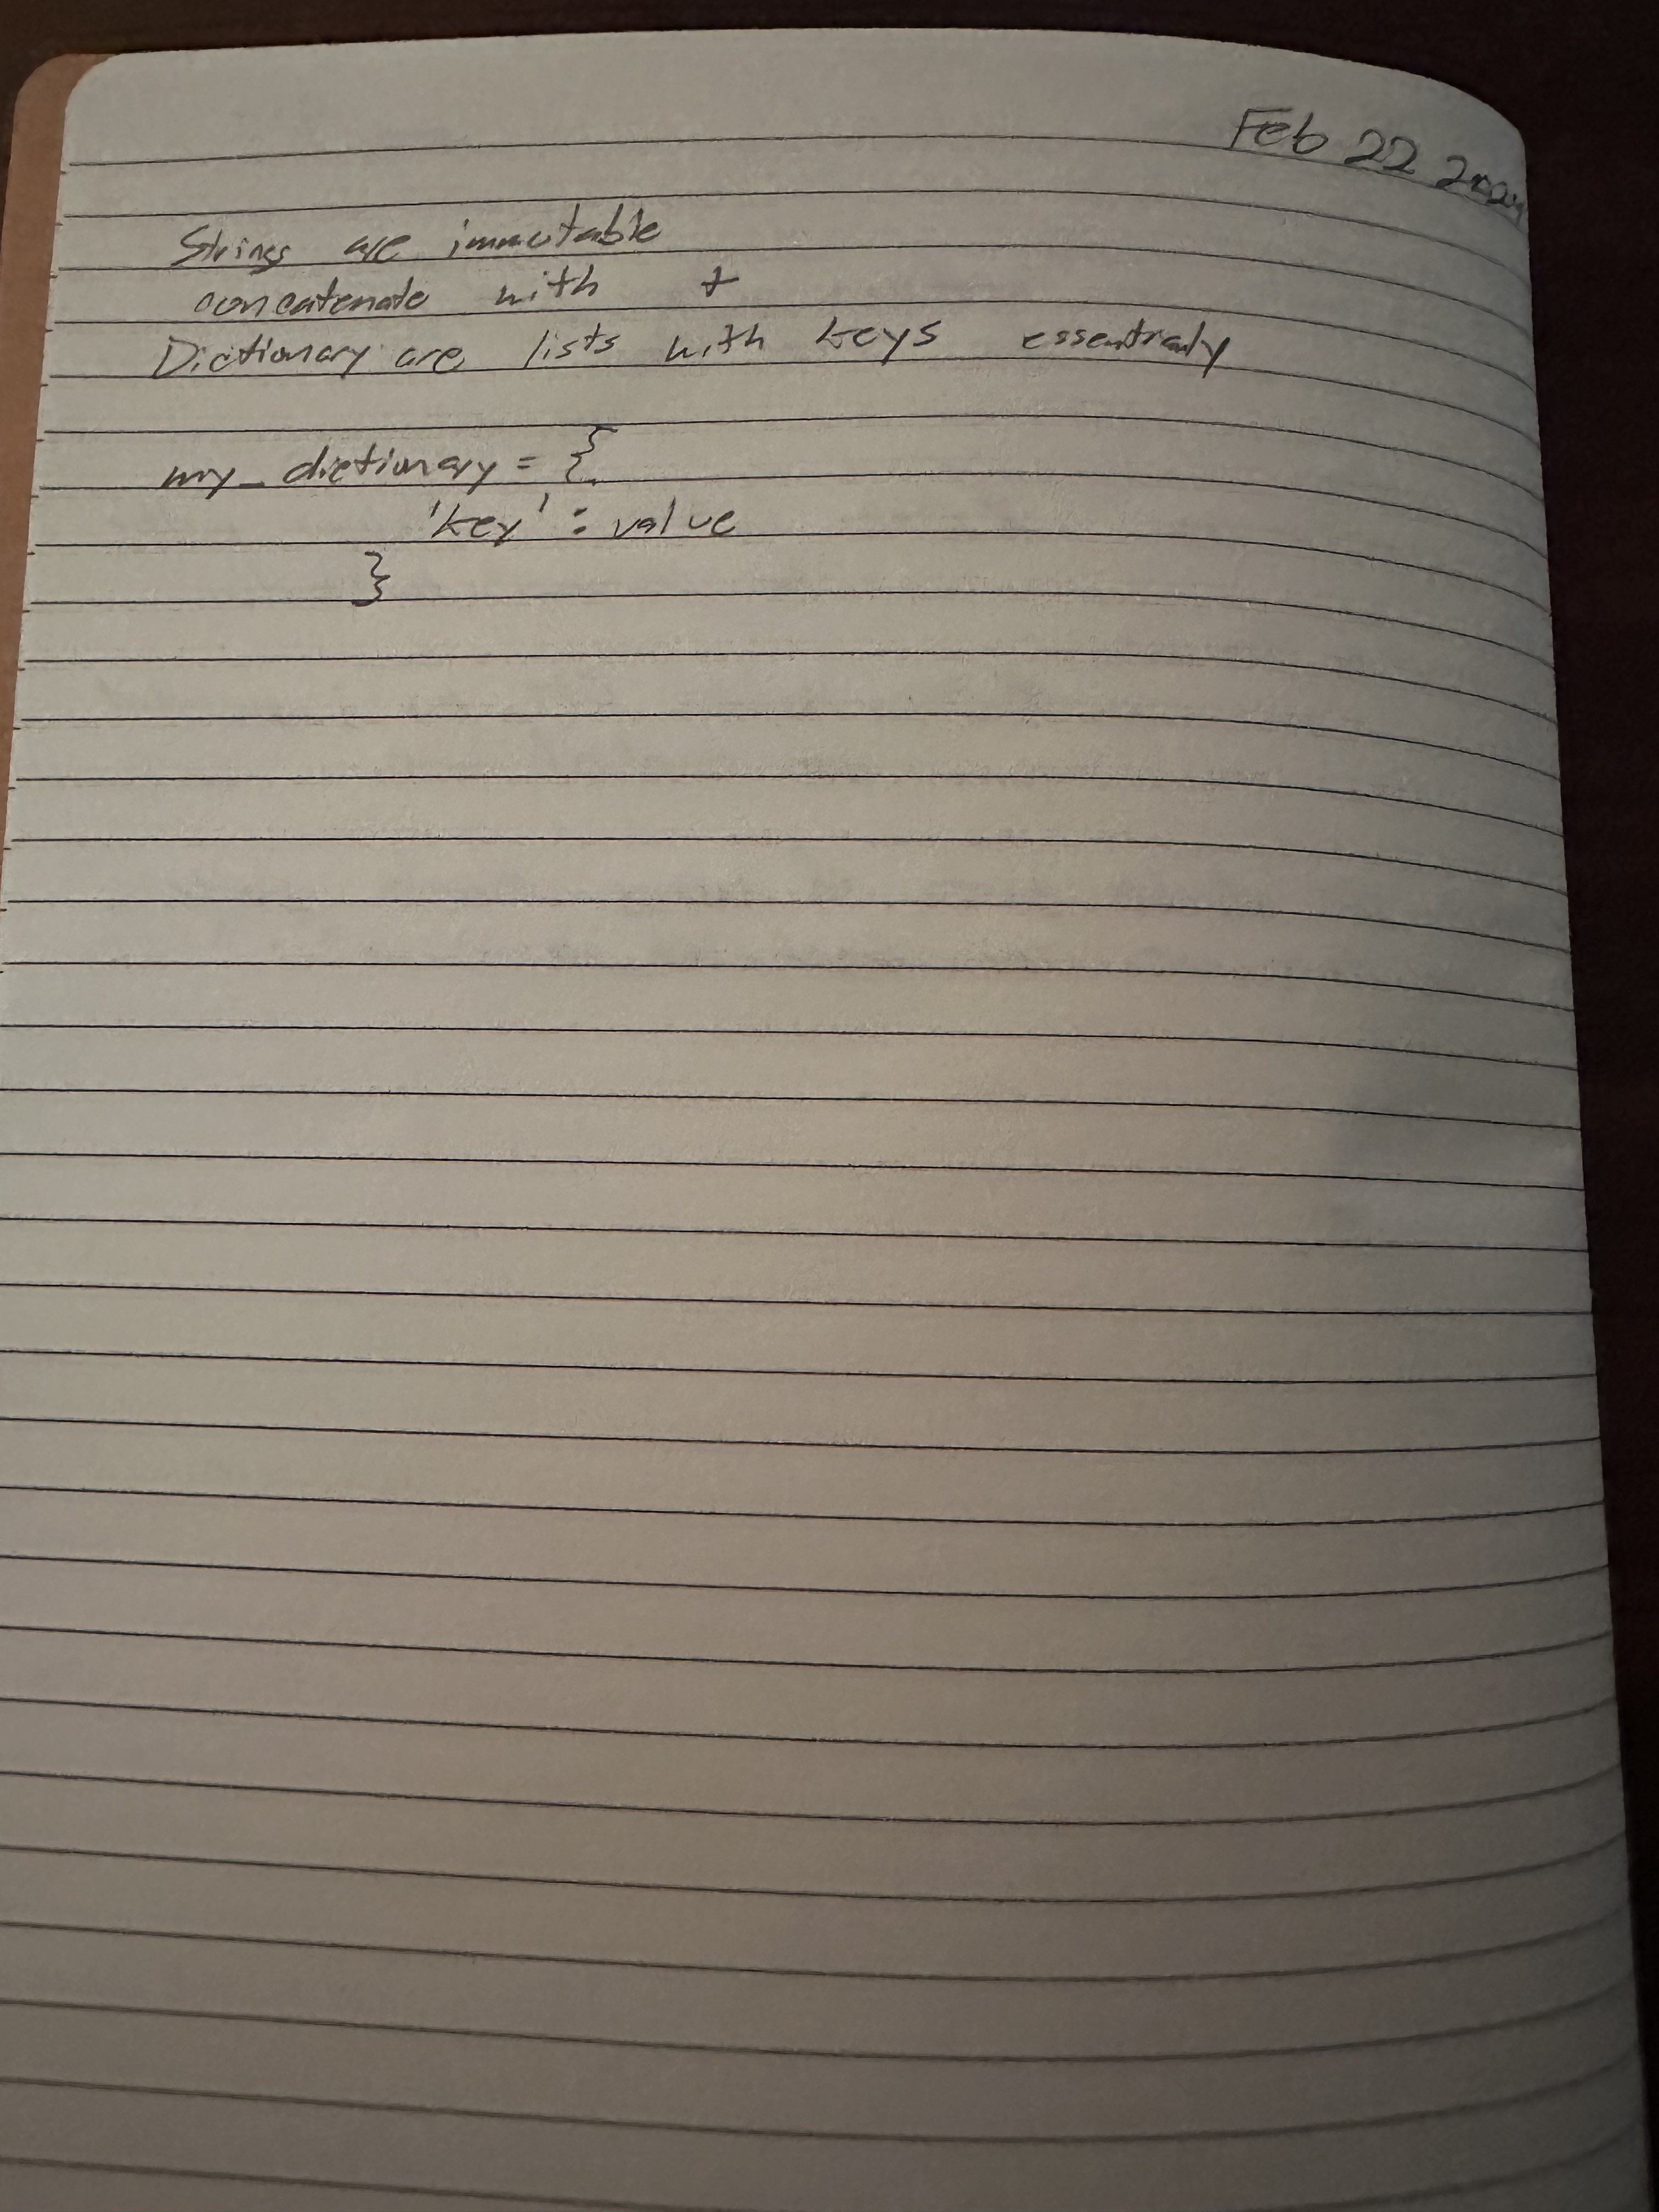 Feb 22 2024
Strings are immutable
concatenate with +
Dictionary are lists with keys essentialy
my_dictionary = {
'key' : value
}